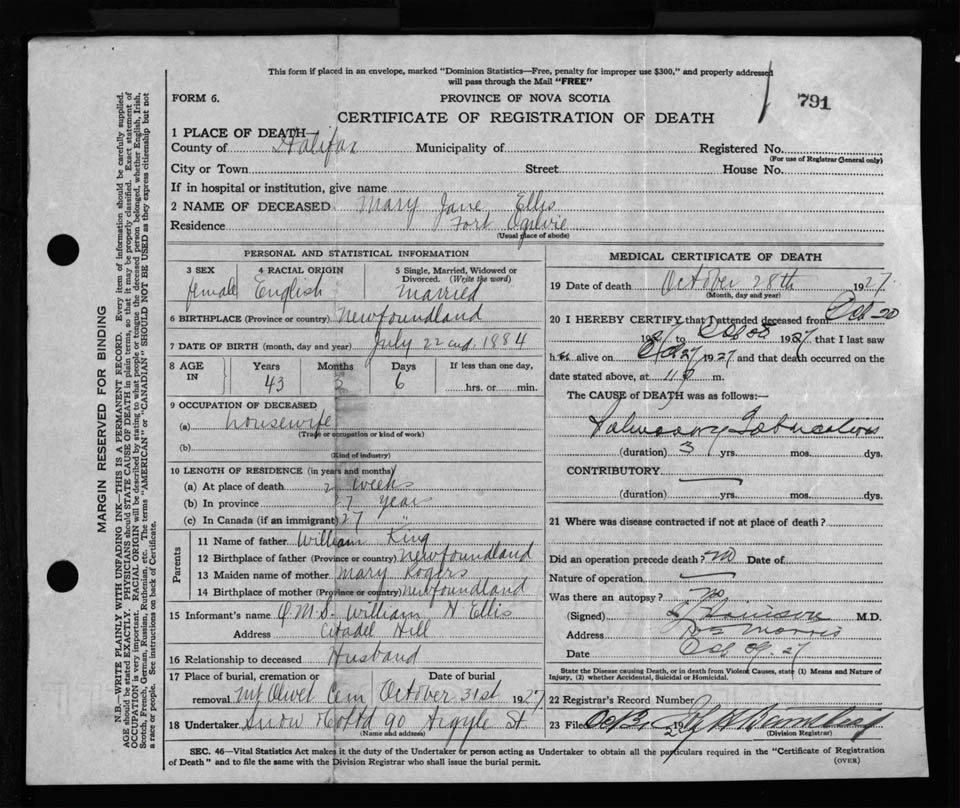 This form if placed in an envelope, marked "Dominion Statistics—Free, penalty for improper use $300," and properly addressed
will pass through the Mail "FREE"
791
FORM 6.
PROVINCE OF NOVA SCOTIA
CERTIFICATE OF REGISTRATION OF DEATH
1 PLACE OF DEATH—
County of Halifax Municipality of Registered No.
(For use of Registrar General only)
City or Town Street House No.
If in hospital or institution, give name
2 NAME OF DECEASED Mary Jane Ellis
Residence Fort Ogilvie
(Usual place of abode)
PERSONAL AND STATISTICAL INFORMATION
3 SEX 4 RACIAL ORIGIN 5 Single, Married, Widowed or
Divorced. (Write the word)
female English Married
6 BIRTHPLACE (Province or country) Newfoundland
7 DATE OF BIRTH (month, day and year) July 22nd 1884
8 AGE IN Years Months Days If less than one day,
43 3 6 hrs. or min.
9 OCCUPATION OF DECEASED
(a) housewife
(Trade or occupation or kind of work)
(b)
(Kind of industry)
10 LENGTH OF RESIDENCE (in years and months)
(a) At place of death 2 weeks
(b) In province 27 years
(c) In Canada (if an immigrant) 27
Parents
11 Name of father William King
12 Birthplace of father (Province or country) Newfoundland
13 Maiden name of mother Mary Rogers
14 Birthplace of mother (Province or country) Newfoundland
15 Informant's name Q.M.S. William H Ellis
Address Citadel Hill
16 Relationship to deceased Husband
17 Place of burial, cremation or Date of burial
removal Mt Olivet Cem October 31st 1927
18 Undertaker Snow & Co Ltd 90 Argyle St
(Name and address)
MEDICAL CERTIFICATE OF DEATH
19 Date of death October 28th 1927
(Month, day and year)
20 I HEREBY CERTIFY that I attended deceased from Oct 20
1927 to Oct 28 1927 that I last saw
her alive on Oct 27 1927 and that death occurred on the
date stated above, at 11 P m.
The CAUSE of DEATH was as follows:—
Pulmonary Tuberculosis
(duration) 3 yrs. mos. dys.
CONTRIBUTORY
(duration) yrs. mos. dys.
21 Where was disease contracted if not at place of death?
Did an operation precede death? no Date of
Nature of operation
Was there an autopsy? No
(Signed) M.D.
Address Morris
Date Oct 27
State the Disease causing Death, or in death from Violent Causes, state (1) Means and Nature of
Injury, (2) whether Accidental, Suicidal or Homicidal.
22 Registrar's Record Number
23 Filed Oct 31 19
(Division Registrar)
SEC. 46—Vital Statistics Act makes it the duty of the Undertaker or person acting as Undertaker to obtain all the particulars required in the "Certificate of Registration
of Death" and to file the same with the Division Registrar who shall issue the burial permit.
(OVER)
MARGIN RESERVED FOR BINDING
N.B.—WRITE PLAINLY WITH UNFADING INK—THIS IS A PERMANENT RECORD. Every item of information should be carefully supplied.
AGE should be stated EXACTLY. PHYSICIANS should STATE CAUSE OF DEATH in plain terms, so that it may be properly classified. Exact statement of
OCCUPATION is very important. RACIAL ORIGIN will be described by stating to what people or tongue the deceased person belonged, whether English, Irish,
Scotch, French, German, Russian, Ruthenian, etc. The terms "AMERICAN" or "CANADIAN" SHOULD NOT BE USED as they express citizenship but not
a race or people. See instructions on back of Certificate.